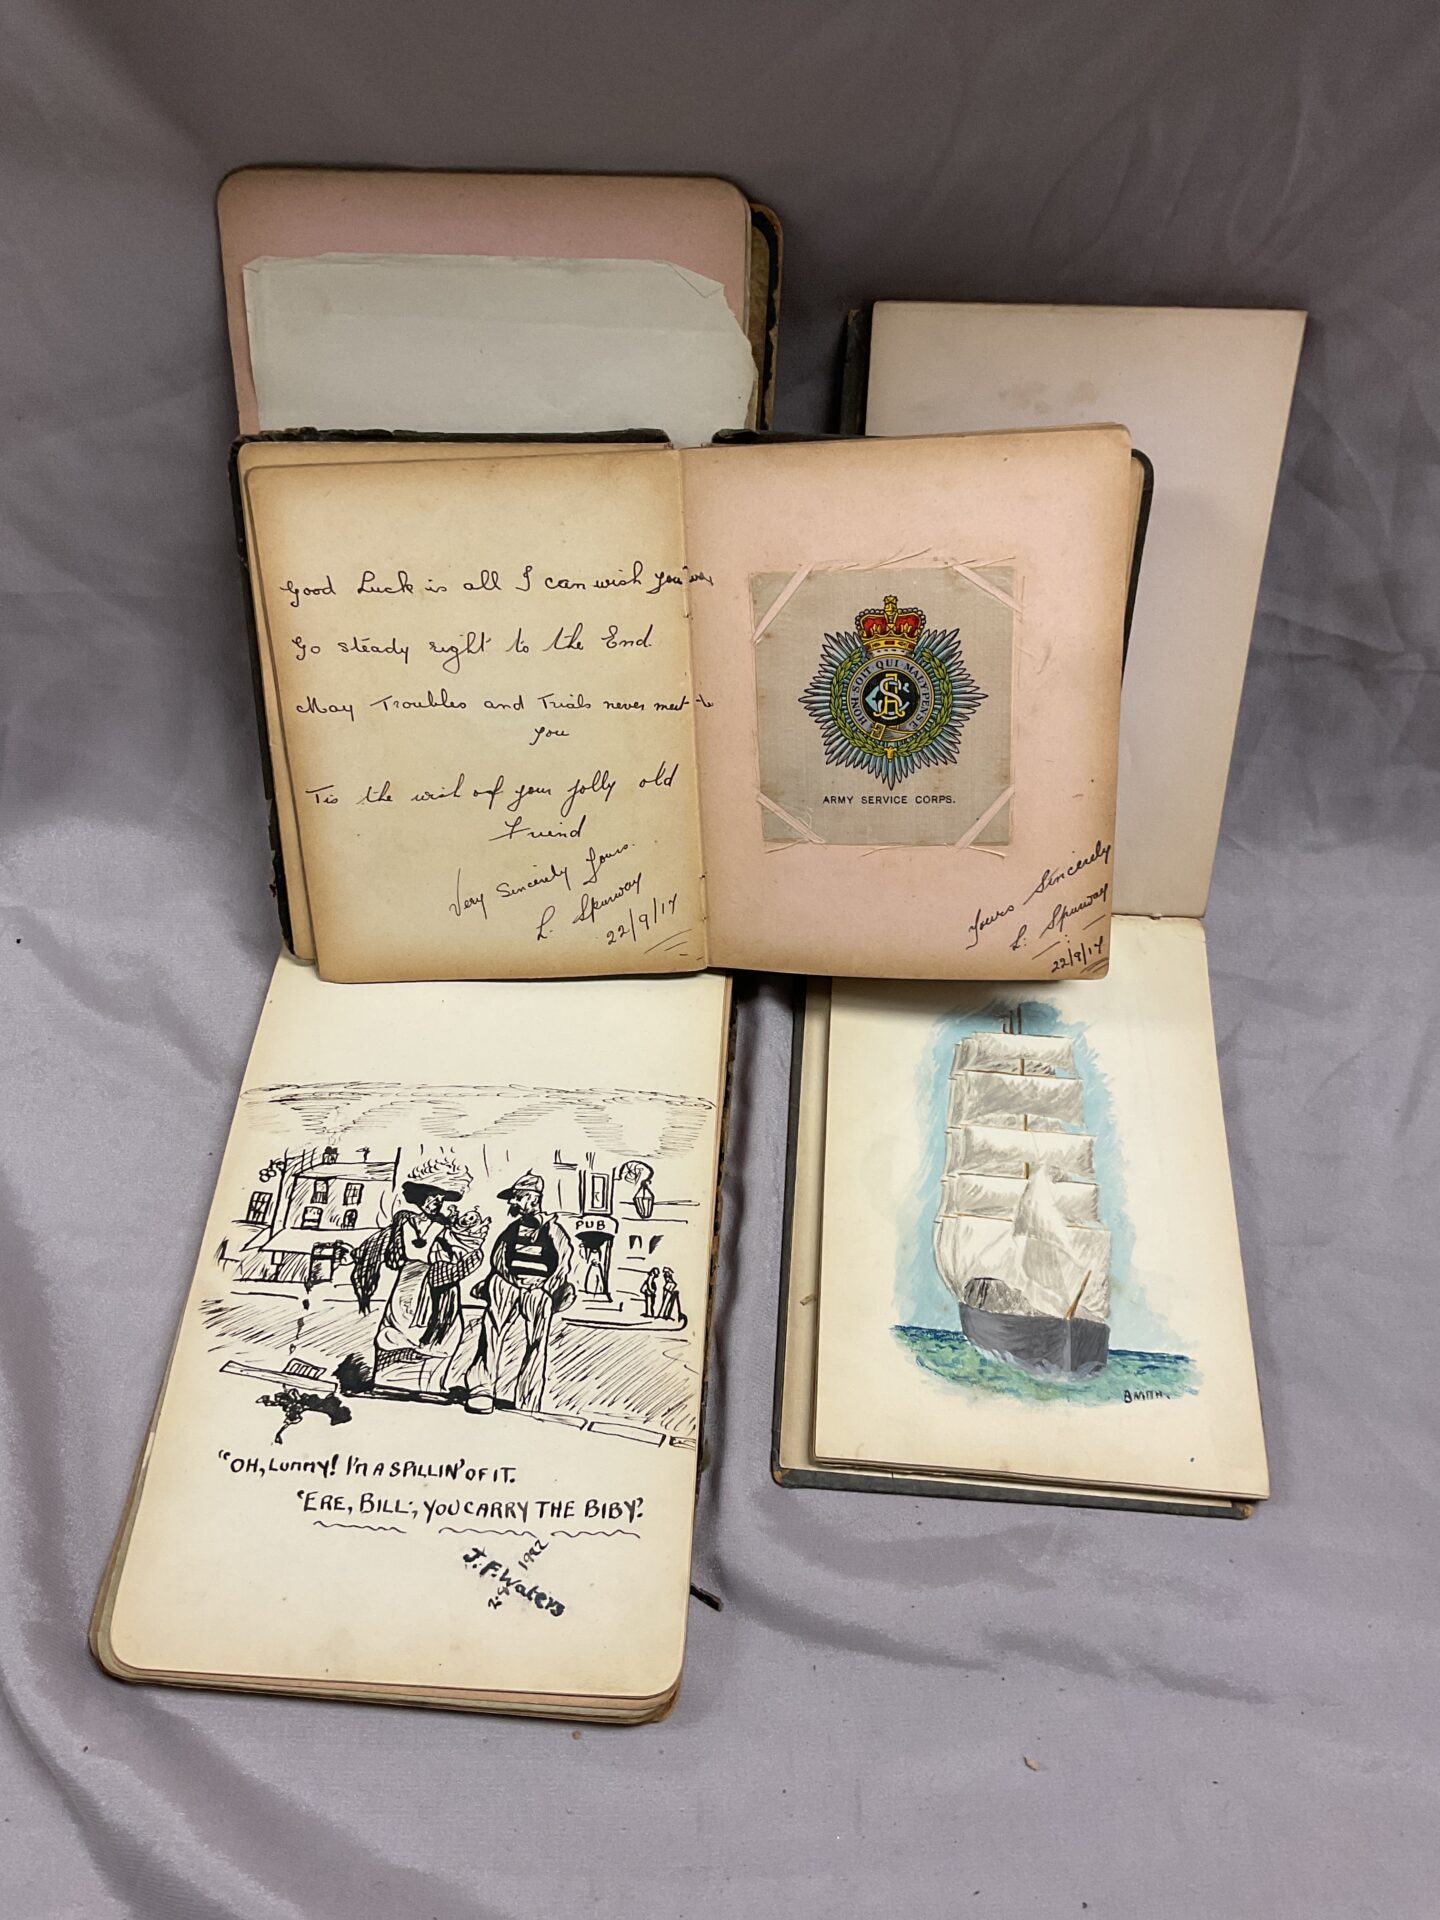 Good Luck is all I can wish you
Go steady right to the End.
May Troubles and Trials never meet
you
Tis the wish of your jolly old
Friend
Very Sincerely Yours.
L. Spurway
22/9/17
HONI SOIT QUI MAL Y PENSE
ARMY SERVICE CORPS.
Yours Sincerely
L. Spurway
22/9/17
PUB
"OH, LUMMY! I'M A SPILLIN' OF IT.
'ERE, BILL, YOU CARRY THE BIBY."
J.F. Waters
1922